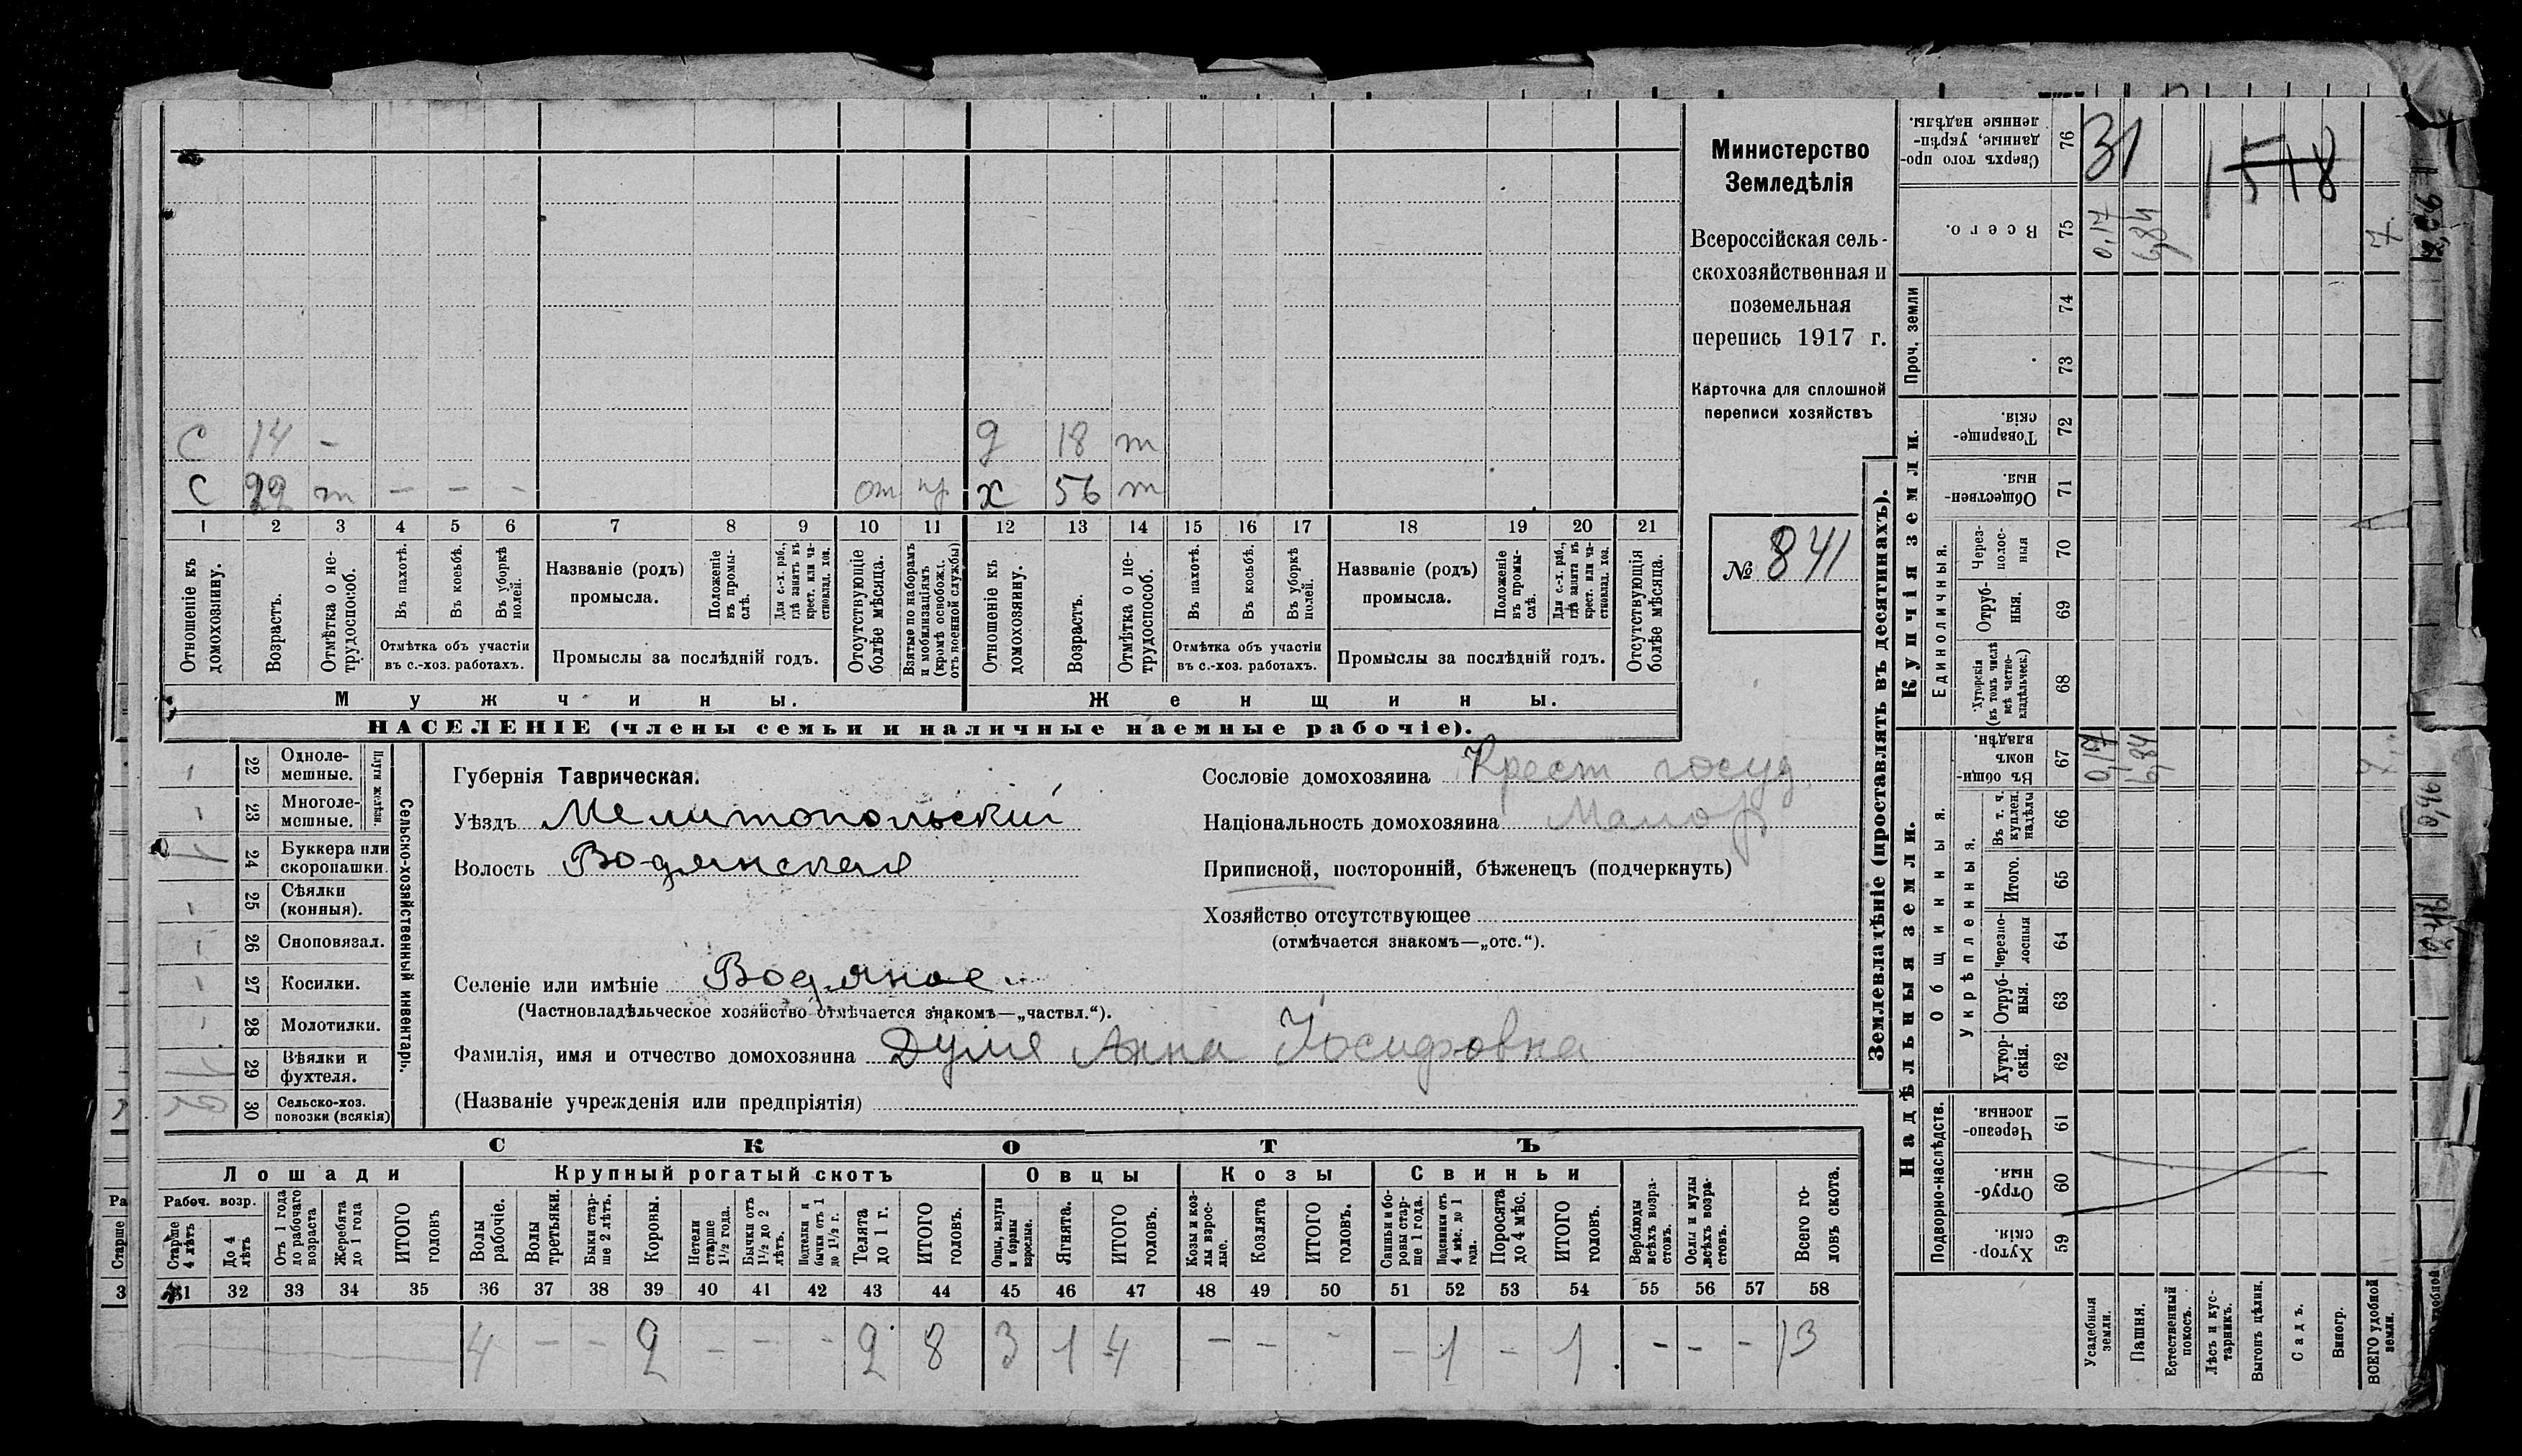 С 14 - д 18 т
С 22 т - - - от пр х 56 т
1 2 3 4 5 6 7 8 9 10 11 12 13 14 15 16 17 18 19 20 21
Отношеніе къ домохозяину.
Возрастъ.
Отмѣтка о не-трудоспособ.
Въ пахотѣ.
Въ косьбѣ.
Въ уборкѣ полей.
Отмѣтка объ участіи
въ с.-хоз. работахъ.
Названіе (родъ)
промысла.
Положеніе въ промы-слѣ.
Для с.-х. раб., гдѣ занятъ въ крест. или ча-стновлад. хоз.
Промыслы за послѣдній годъ.
Отсутствующіе болѣе мѣсяца.
Взятые по наборамъ и мобилизаціямъ (кромѣ освобожд. отъ военной службы)
Отношеніе къ домохозяину.
Возрастъ.
Отмѣтка о не-трудоспособ.
Въ пахотѣ.
Въ косьбѣ.
Въ уборкѣ полей.
Отмѣтка объ участіи
въ с.-хоз. работахъ.
Названіе (родъ)
промысла.
Положеніе въ промы-слѣ.
Для с.-х. раб., гдѣ занята въ крест. или ча-стновлад. хоз.
Промыслы за послѣдній годъ.
Отсутствующія болѣе мѣсяца.
Мужчины.
Женщины.
НАСЕЛЕНІЕ (члены семьи и наличные наемные рабочіе).
Министерство
Земледѣлія
Всероссійская сель-
скохозяйственная и
поземельная
перепись 1917 г.
Карточка для сплошной
переписи хозяйствъ
№ 841
Сельско-хозяйственный инвентарь.
Плуги желѣзн.
22 Однолемешные. -
23 Многолемешные. -
24 Буккера или скоропашки. 1
25 Сѣялки (конныя). -
26 Сноповязал. -
27 Косилки. -
28 Молотилки. -
29 Вѣялки и фухтеля.
30 Сельско-хоз. повозки (всякія)
Губернія Таврическая.
Уѣздъ Мелитопольскій
Волость Водянская
Селеніе или имѣніе Водяное
(Частновладѣльческое хозяйство отмѣчается знакомъ—„частвл.“).
Фамилія, имя и отчество домохозяина Анна Іосифовна
(Названіе учрежденія или предпріятія)
Сословіе домохозяина Крест госуд
Національность домохозяина Малор
Приписной, посторонній, бѣженецъ (подчеркнуть)
Хозяйство отсутствующее
(отмѣчается знакомъ—„отс.“).
СКОТЪ
Лошади
Крупный рогатый скотъ
Овцы
Козы
Свиньи
Рабоч. возр.
Старше 4 лѣтъ
До 4 лѣтъ
Отъ 1 года до рабочаго возраста
Жеребята до 1 года
ИТОГО головъ
Волы рабочіе.
Волы третьяки.
Быки стар-ше 2 лѣтъ.
Коровы.
Нетели старше 1½ года.
Бычки отъ 1½ до 2 лѣтъ.
Подтелки и бычки отъ 1 до 1½ г.
Телята до 1 г.
ИТОГО головъ.
Овцы, валухи и бараны взрослые.
Ягнята.
ИТОГО головъ.
Козы и коз-лы взрос-лые.
Козлята
ИТОГО головъ.
Свиньи и бо-ровы стар-ше 1 года.
Подсвинки отъ 4 мѣс. до 1 года.
Поросята до 4 мѣс.
ИТОГО головъ.
Верблюды всѣхъ возра-стовъ.
Ослы и мулы всѣхъ возра-стовъ.
Всего го-ловъ скота.
31 32 33 34 35 36 37 38 39 40 41 42 43 44 45 46 47 48 49 50 51 52 53 54 55 56 57 58
4 - - 2 - - - 2 8 3 1 4 - - - - 1 - 1 - - - 13
Землевладѣніе (проставлять въ десятинахъ).
Надѣльныя земли.
Купчія земли.
Проч. земли
Подворно-наслѣдств.
Общинныя.
Укрѣпленныя.
Единоличныя.
59 Хутор-скія.
60 Отруб-ныя.
61 Черезпо-лосныя
62 Хутор-скія.
63 Отруб-ныя.
64 Черезпо-лосныя
65 Итого.
66 Въ т. ч. куплен. надѣлы
67 Въ общин-номъ владѣн. 0,17 6,84
68 Хуторскія (въ томъ числѣ всѣ частно-владѣльческ.)
69 Отруб-ныя.
70 Через-полос-ныя
71 Обществен-ныя.
72 Товарище-скія.
73
74
75 Всего. 0,17 6,84 7.
76 Сверхъ того про-данные, укрѣп-ленные надѣлы.
31
1518
Усадебныя земли.
Пашня.
Естественный покосъ.
Лѣсъ и кус-тарникъ.
Выгонъ цѣлин.
Садъ.
Виногр.
ВСЕГО удобной земли.
Старше
3